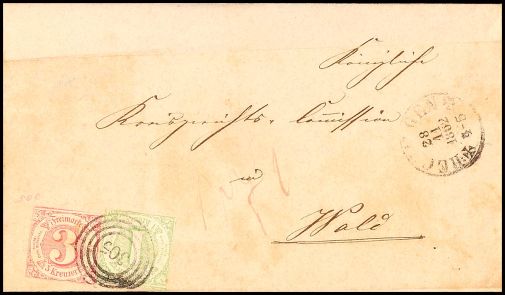 Königliche
Kreisgerichts-Commission
in
Wald
28
11
1862
4-5
Freimarke
3
3 Kreuzer
305